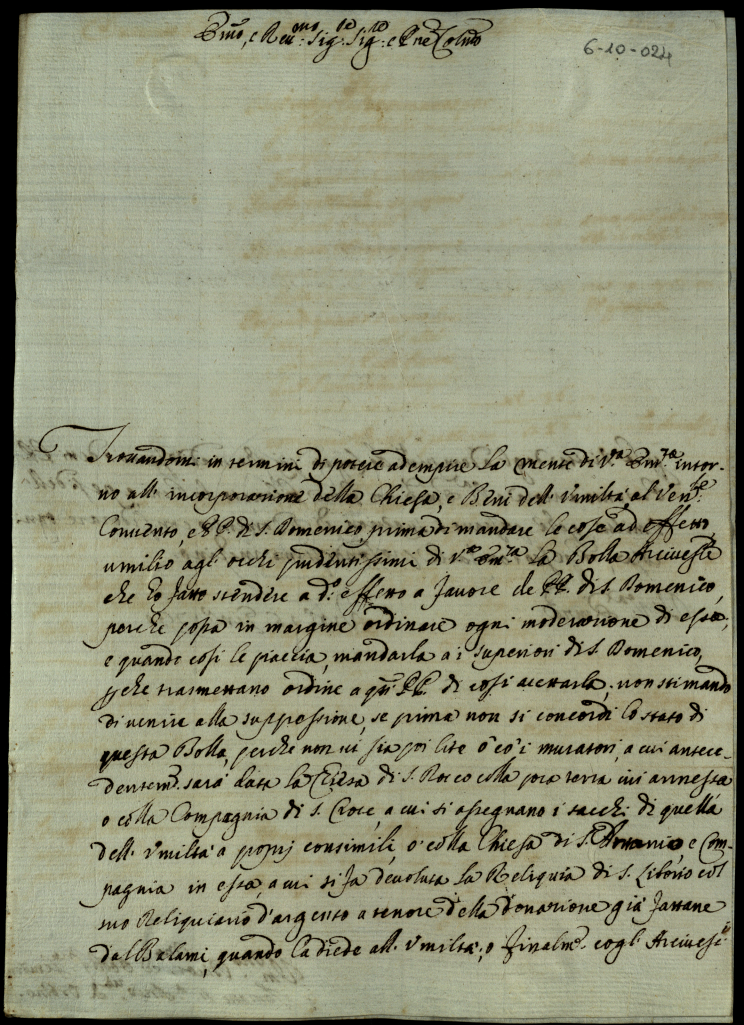 Emo, e Reu:mo Sig:re Sig:re e Prne Colmo
6-10-024
Trouandomi in termini di potere adempire la mente di V.ra Em.za intor-
no all'incorporazione della Chiesa, e Beni dell'Vmiltà, al Ven:e
Conuento, e PP. di S. Domenico, prima di mandare le cose ad effetto
umilio agl'occhi prudentissimi di V.ra Em.za la Bolla
che ho fatto stendere a d.o effetto a fauore de PP. di S. Domenico,
perche possa in margine ordinare ogni moderazione di essa,
e quando cosi le piaccia, mandarla a i superiori di S. Domenico,
pche trasmettano ordine a qsti PP. di cosi accettarla, non stimando
di venire alla suppressione, se prima non si concordi lo stato di
questa Bolla, perche non ui sia poi lite ò co' i muratori, a cui antece-
dentem.e sarà data la Chiesa di S. Rocco colla poca terra iui annessa
o colla Compagnia di S. Croce, a cui si assegnano i sacchi di quella
dell'Vmiltà a proprj consimili, ò colla Chiesa di S. Antonio e Com-
pagnia in essa, a cui si fa deuoluta la Reliquia di S. Liborio col
suo Reliquiario d'argento a tenore della donazione già fattane
dal Balami, quando la diede all'Vmiltà, o finalm.e cogl'